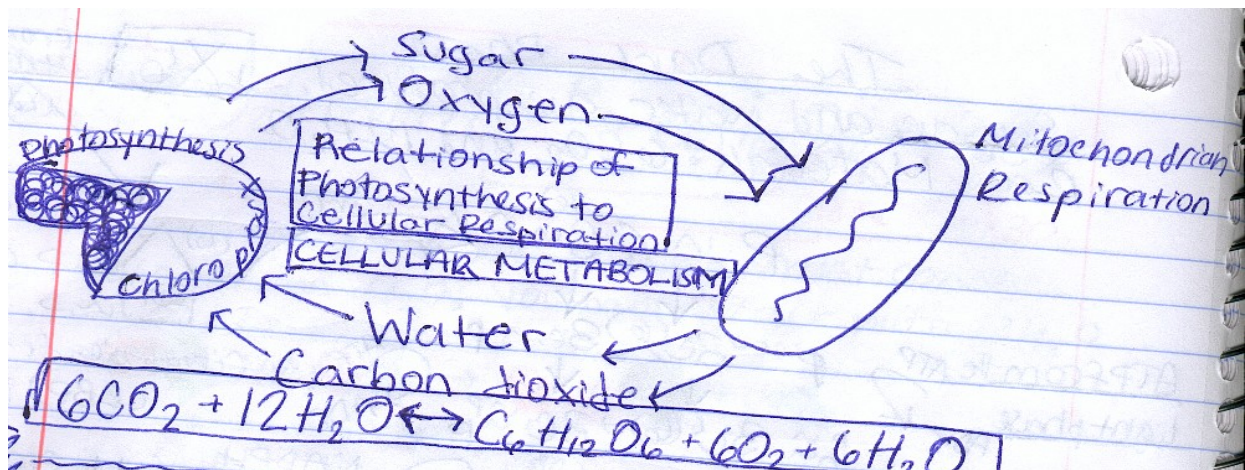 Sugar
Oxygen
Photosynthesis
Relationship of
Photosynthesis to
Cellular Respiration
CELLULAR METABOLISM
Mitochondrian
Respiration
Water
Carbon dioxide
6CO₂ + 12H₂O ↔ C₆H₁₂O₆ + 6O₂ + 6H₂O